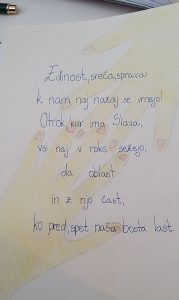 Edinost, sreča, sprava
k nam naj nazaj se vrnejo!
Otrok, kar ima Slava,
vsi naj v roke sežejo,
da oblast
in z njo čast,
ko pred, spet naša bosta last.